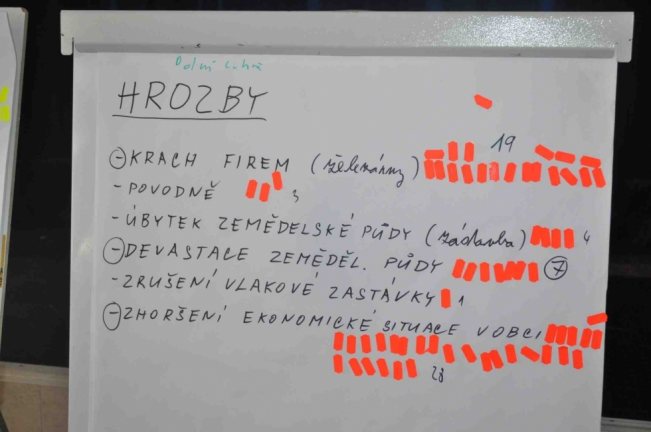 Dolní Lhota
HROZBY
19
- KRACH FIREM (železárny)
- POVODNĚ 3
- ÚBYTEK ZEMĚDELSKÉ PŮDY (zástavba) 4
- DEVASTACE ZEMĚDĚL. PŮDY 7
- ZRUŠENÍ VLAKOVÉ ZASTÁVKY 1
- ZHORŠENÍ EKONOMICKÉ SITUACE V OBCI
28